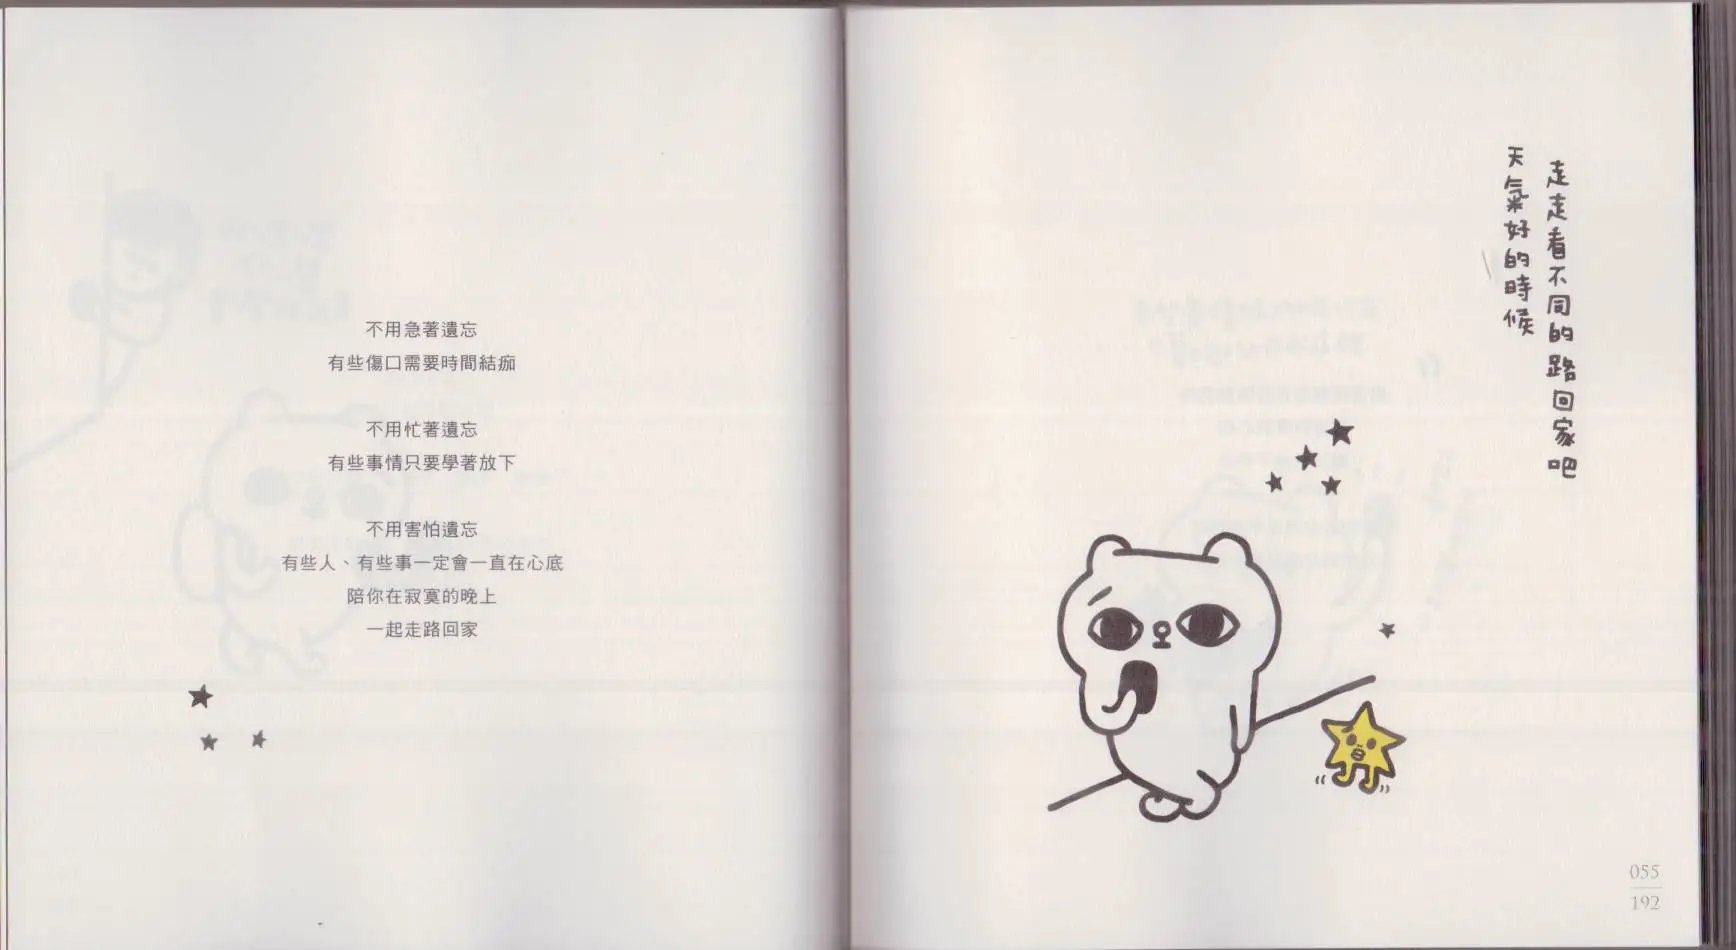 不用急著遺忘
有些傷口需要時間結痂
不用忙著遺忘
有些事情只要學著放下
不用害怕遺忘
有些人、有些事一定會一直在心底
陪你在寂寞的晚上
一起走路回家
走走看不同的路回家吧
天氣好的時候
055
192